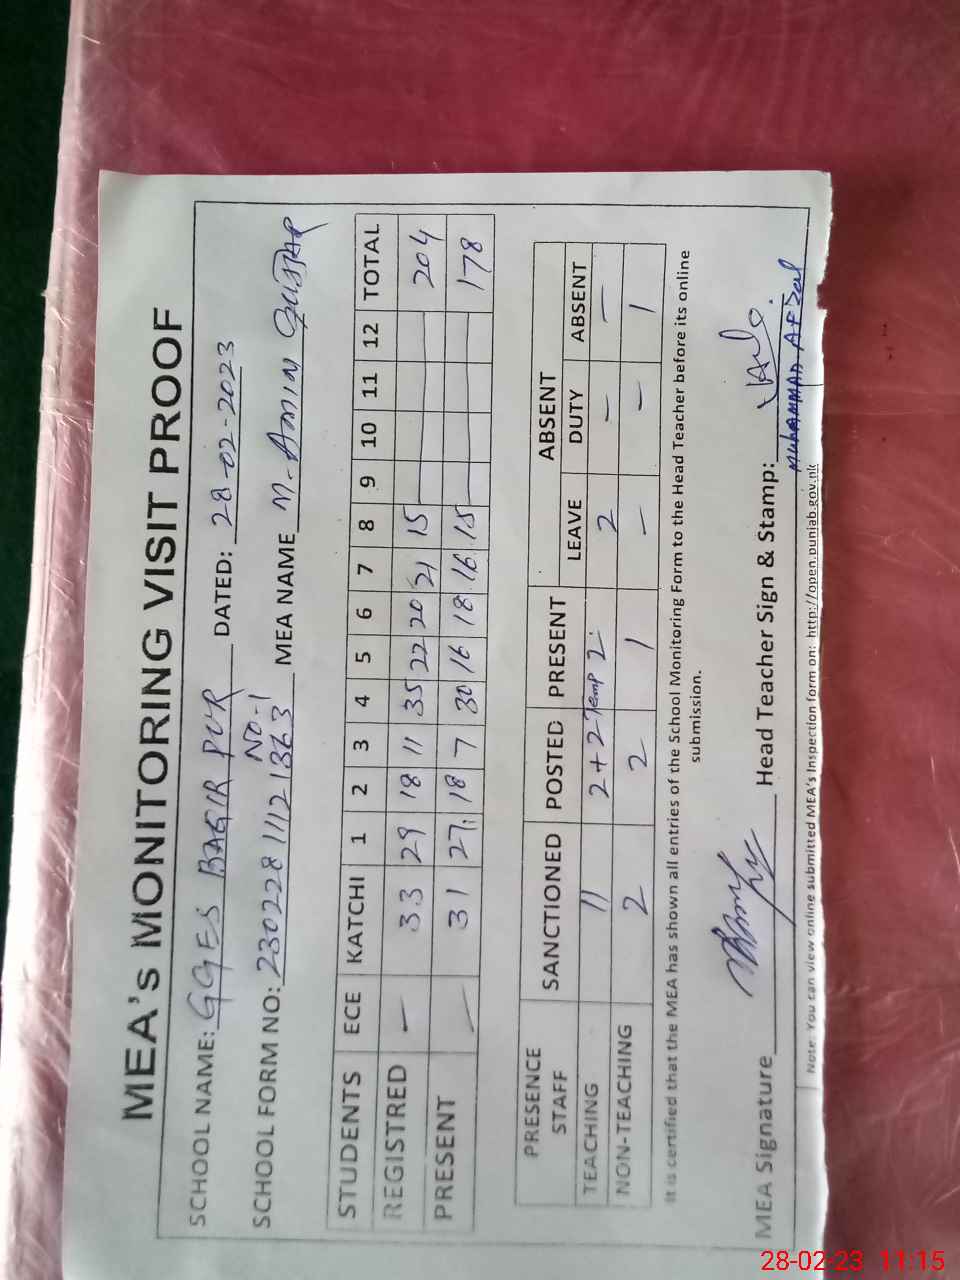 MEA's MONITORING VISIT PROOF
SCHOOL NAME: GGES BAGIR PUR NO-1 DATED: 28-02-2023
SCHOOL FORM NO: 2302281112 1363 MEA NAME M. AMIN
STUDENTS ECE KATCHI 1 2 3 4 5 6 7 8 9 10 11 12 TOTAL
REGISTRED — 33 29 18 11 35 22 20 21 15 — 204
PRESENT — 31 27 18 7 30 16 18 16 15 — 178
PRESENCE STAFF SANCTIONED POSTED PRESENT ABSENT
LEAVE DUTY ABSENT
TEACHING 11 2+2 Temp 2 2 — —
NON-TEACHING 2 2 1 — — 1
It is certified that the MEA has shown all entries of the School Monitoring Form to the Head Teacher before its online
submission.
MEA Signature Head Teacher Sign & Stamp:
MUHAMMAD AFZAL
Note: You can view online submitted MEA's Inspection form on: http://open.punjab.gov.pk
28-02-23 11:15